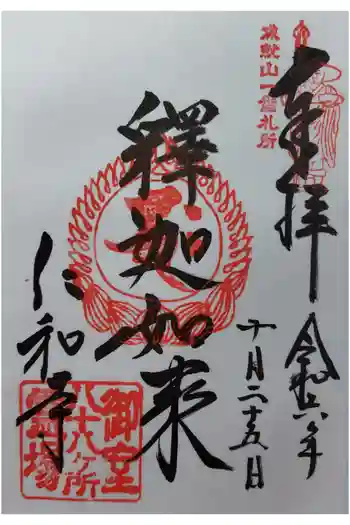 奉拝
成就山一番札所
令和六年
十月二十五日
釋迦如来
仁和寺
御室
八十八ヶ所
霊場